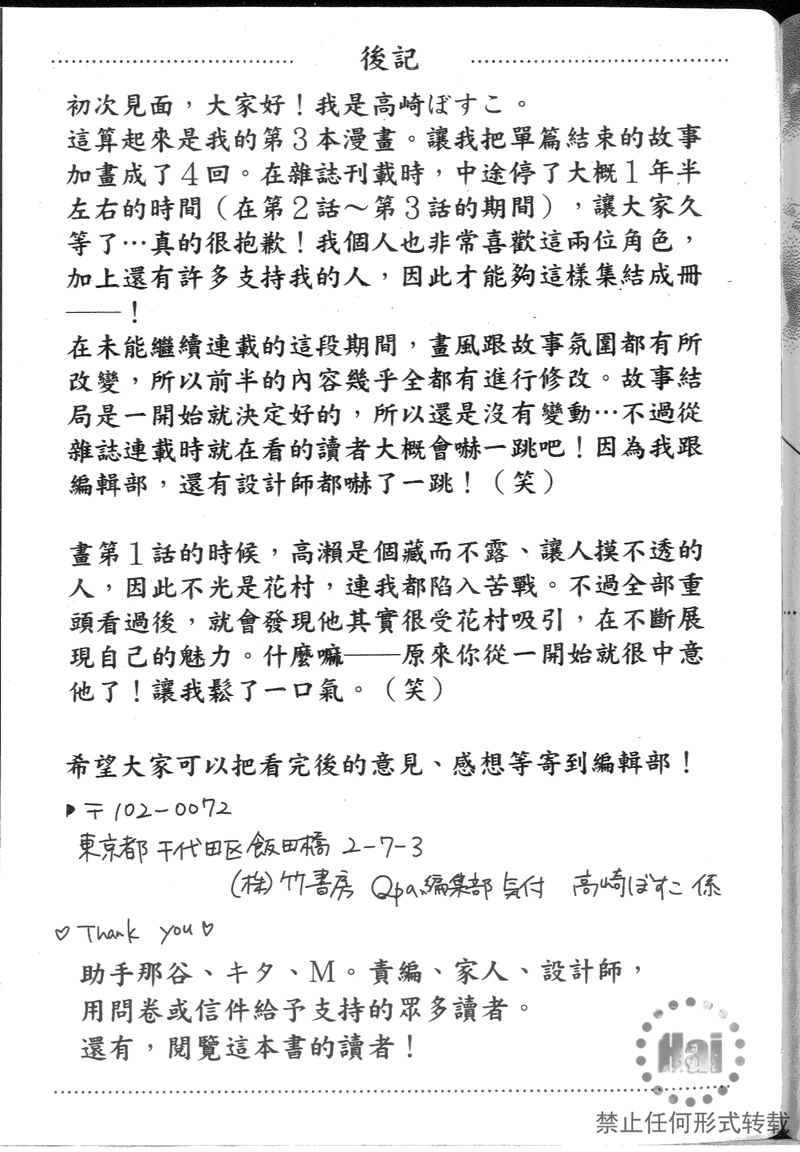 後記
初次見面，大家好！我是高崎ぼすこ。
這算起來是我的第3本漫畫。讓我把單篇結束的故事
加畫成了4回。在雜誌刊載時，中途停了大概1年半
左右的時間（在第2話～第3話的期間），讓大家久
等了…真的很抱歉！我個人也非常喜歡這兩位角色，
加上還有許多支持我的人，因此才能夠這樣集結成冊
——！
在未能繼續連載的這段期間，畫風跟故事氛圍都有所
改變，所以前半的內容幾乎全都有進行修改。故事結
局是一開始就決定好的，所以還是沒有變動…不過從
雜誌連載時就在看的讀者大概會嚇一跳吧！因為我跟
編輯部，還有設計師都嚇了一跳！（笑）
畫第1話的時候，高瀨是個藏而不露、讓人摸不透的
人，因此不光是花村，連我都陷入苦戰。不過全部重
頭看過後，就會發現他其實很受花村吸引，在不斷展
現自己的魅力。什麼嘛——原來你從一開始就很中意
他了！讓我鬆了一口氣。（笑）
希望大家可以把看完後的意見、感想等寄到編輯部！
▶〒102-0072
東京都千代田区飯田橋 2-7-3
(株)竹書房 Qpa編集部 気付 高崎ぼすこ 係
♡Thank you♡
助手那谷、キタ、M。責編、家人、設計師，
用問卷或信件給予支持的眾多讀者。
還有，閱覽這本書的讀者！
Hai
禁止任何形式转载